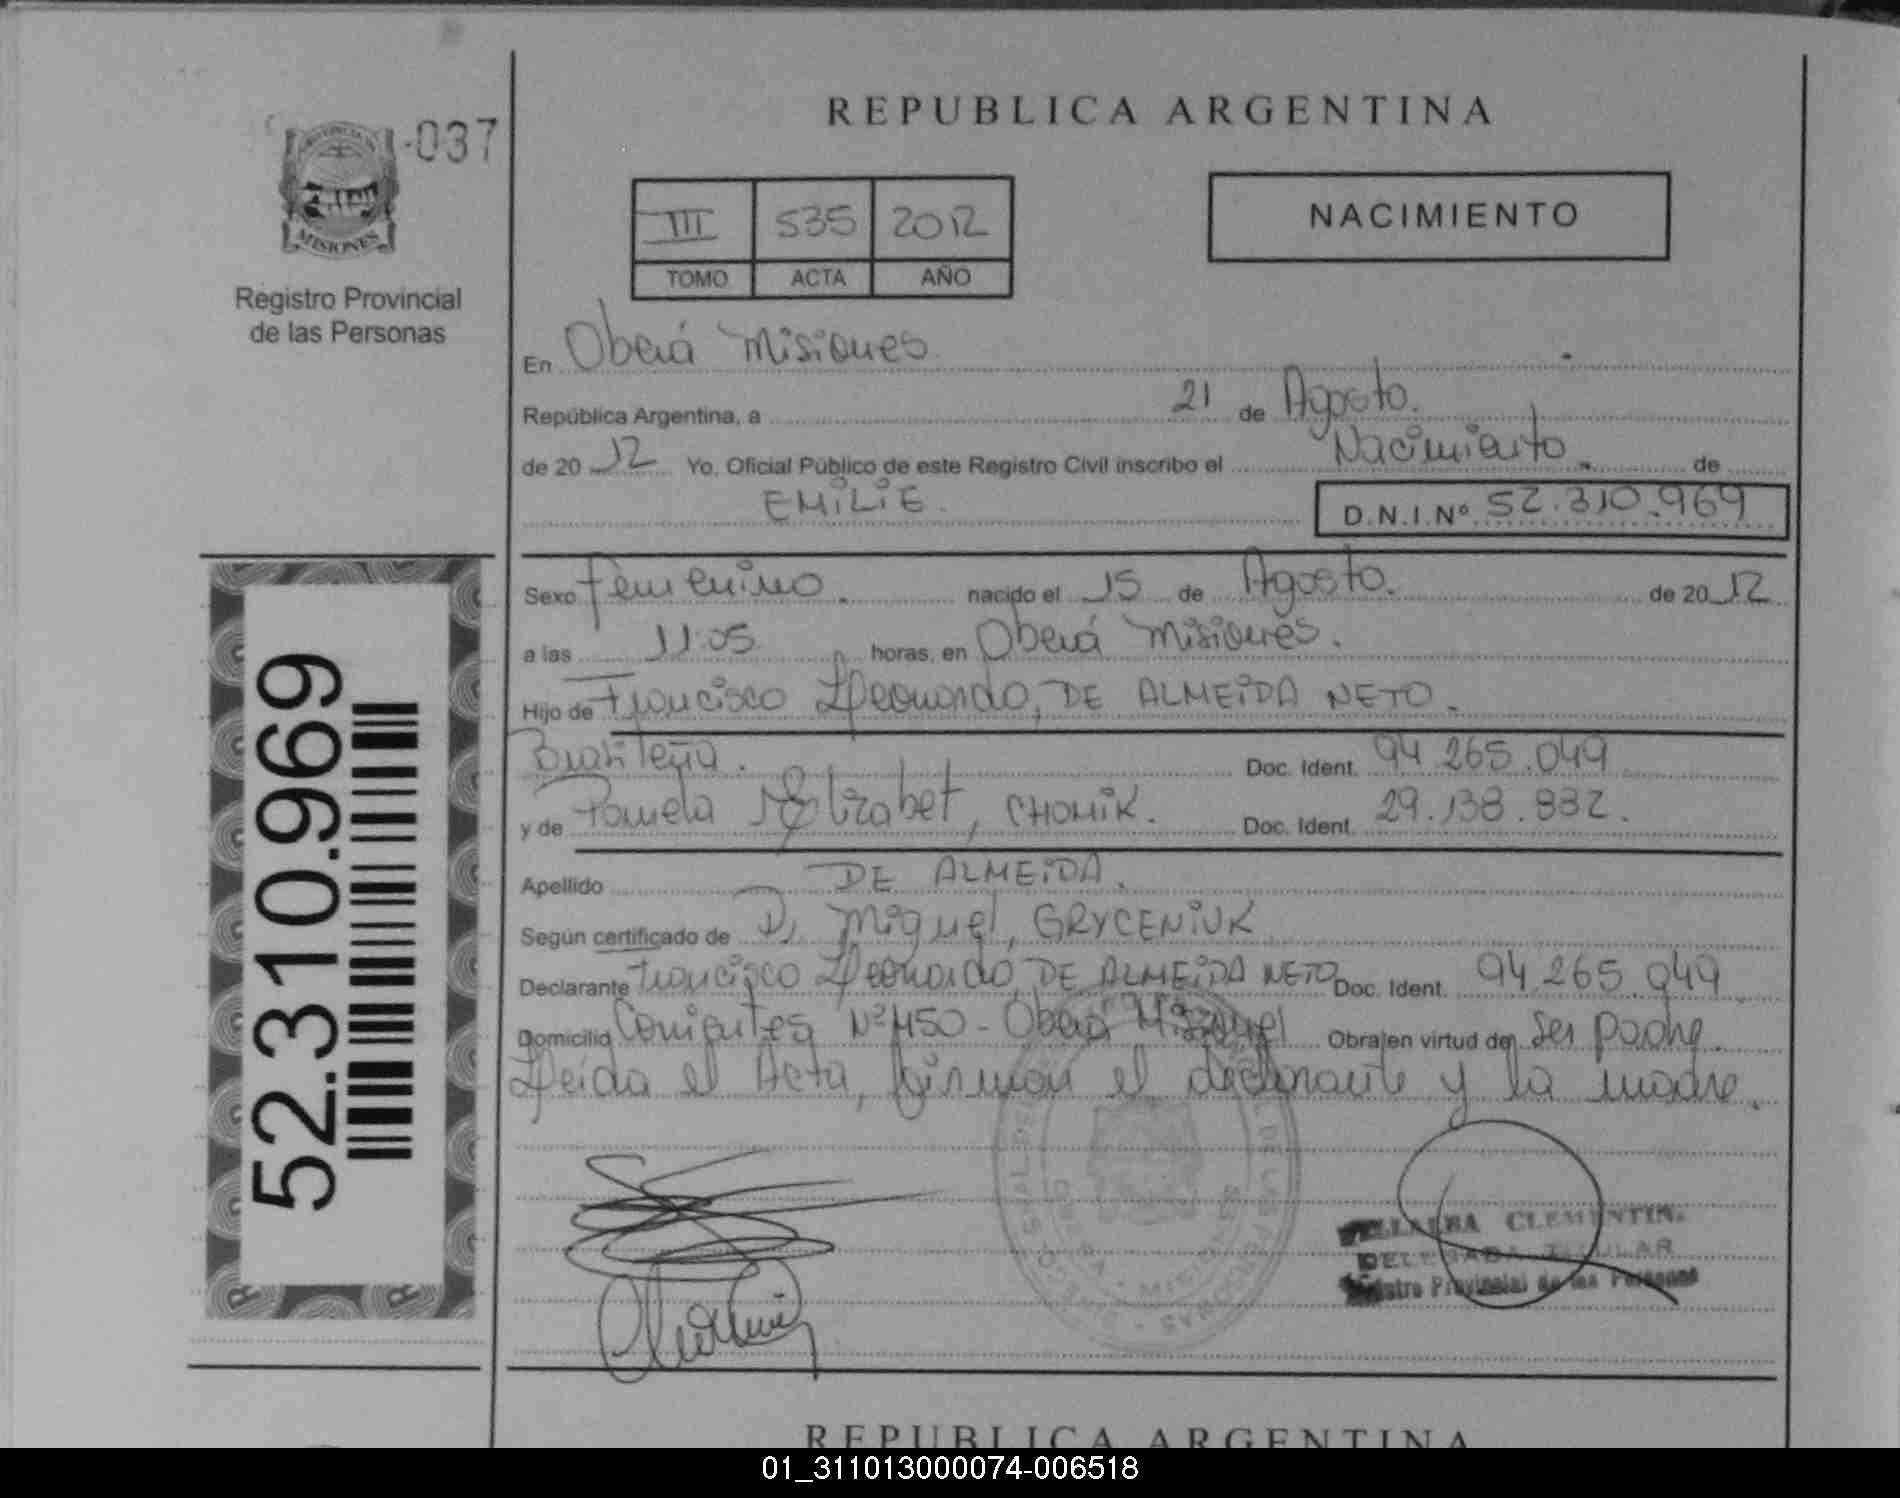 -037
PROVINCIA DE
MISIONES
Registro Provincial
de las Personas
REPUBLICA ARGENTINA
III 535 2012
TOMO ACTA AÑO
NACIMIENTO
En Oberá Misiones.
República Argentina, a 21 de Agosto.
de 20 12 Yo, Oficial Público de este Registro Civil inscribo el Nacimiento de
EMILIE. D.N.I.Nº 52.310.969
52.310.969
Sexo Femenino. nacido el 15 de Agosto. de 20 12
a las 11:05 horas, en Oberá Misiones.
Hijo de Francisco Leonardo, DE ALMEIDA NETO.
Brasileña. Doc. Ident. 94 265.049
y de Pamela Elizabet, CHOMIK. Doc. Ident. 29.138.832.
Apellido DE ALMEIDA.
Según certificado de D, Miguel, GRYCENIUK
Declarante Francisco Leonardo, DE ALMEIDA NETO Doc. Ident. 94.265.049
Domicilio Corrientes Nº 1150 - Oberá Misiones Obra en virtud de Ser Padre.
Leída el Acta, firman el declarante y la madre.
VILLALBA CLEMENTINA
DELEGADA TITULAR
Registro Provincial de las Personas
REPUBLICA ARGENTINA
01_311013000074-006518